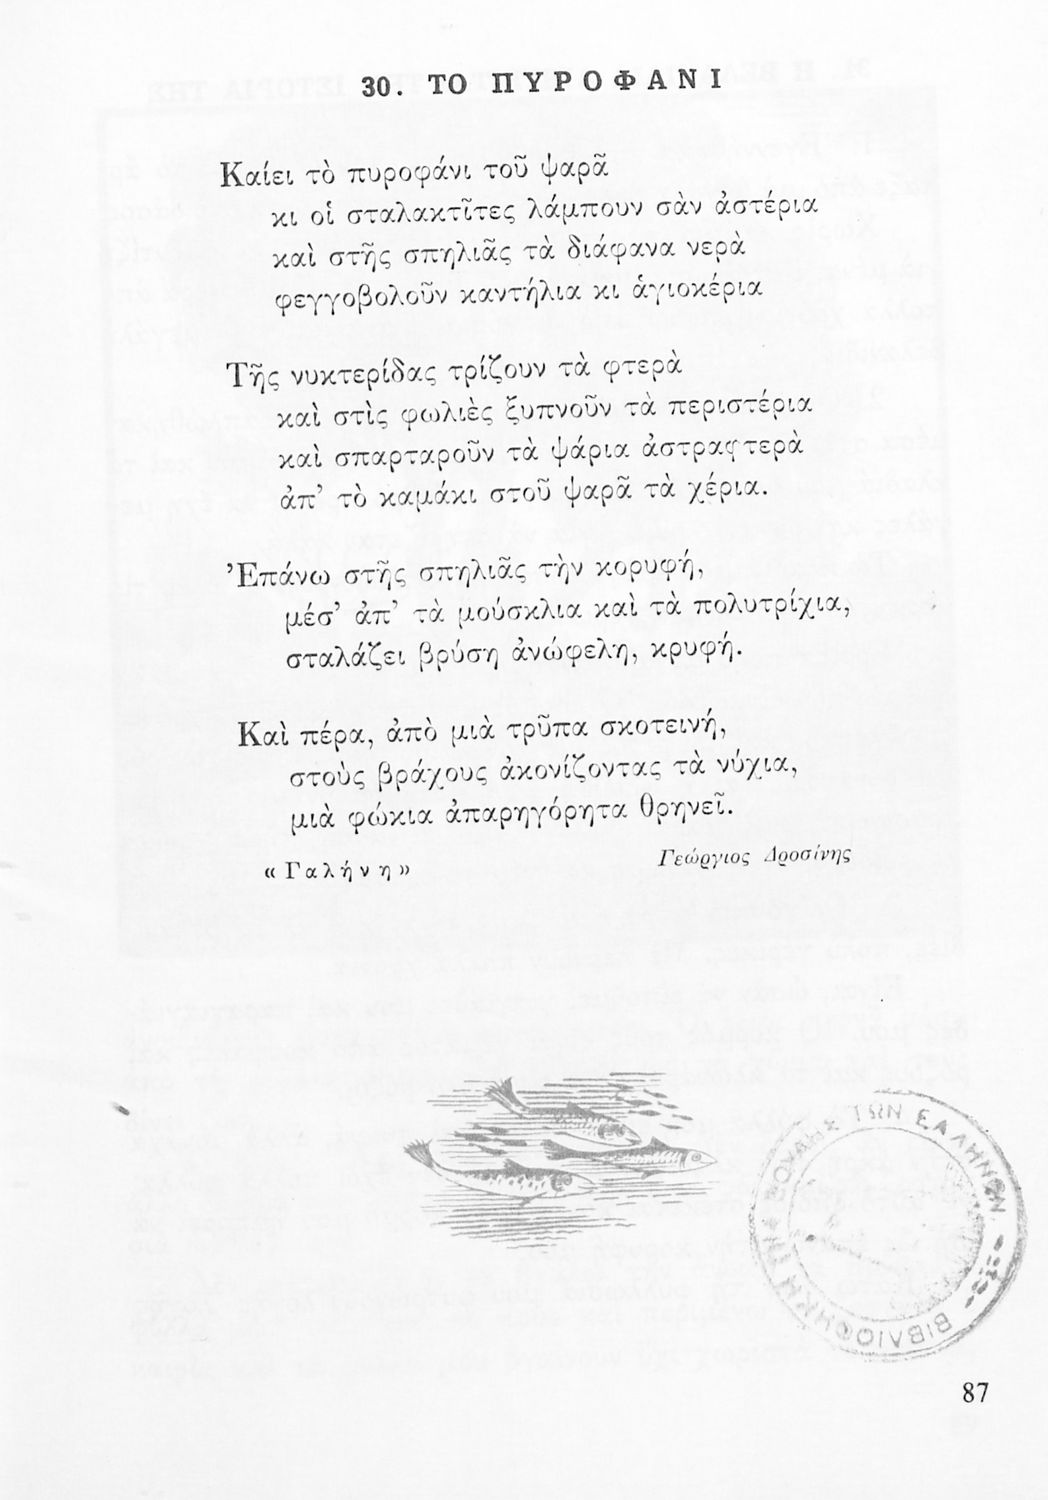 30. ΤΟ ΠΥΡΟΦΑΝΙ
Καίει τὸ πυροφάνι τοῦ ψαρᾶ
κι οἱ σταλακτῖτες λάμπουν σὰν ἀστέρια
καὶ στῆς σπηλιᾶς τὰ διάφανα νερὰ
φεγγοβολοῦν καντήλια κι ἁγιοκέρια
Τῆς νυκτερίδας τρίζουν τὰ φτερὰ
καὶ στὶς φωλιὲς ξυπνοῦν τὰ περιστέρια
καὶ σπαρταροῦν τὰ ψάρια ἀστραφτερὰ
ἀπ’ τὸ καμάκι στοῦ ψαρᾶ τὰ χέρια.
Ἐπάνω στῆς σπηλιᾶς τὴν κορυφή,
μέσ’ ἀπ’ τὰ μούσκλια καὶ τὰ πολυτρίχια,
σταλάζει βρύση ἀνώφελη, κρυφή.
Καὶ πέρα, ἀπὸ μιὰ τρῦπα σκοτεινή,
στοὺς βράχους ἀκονίζοντας τὰ νύχια,
μιὰ φώκια ἀπαρηγόρητα θρηνεῖ.
«Γαλήνη»
Γεώργιος Δροσίνης
ΒΙΒΛΙΟΘΗΚΗ ΤΗΣ ΒΟΥΛΗΣ ΤΩΝ ΕΛΛΗΝΩΝ
87